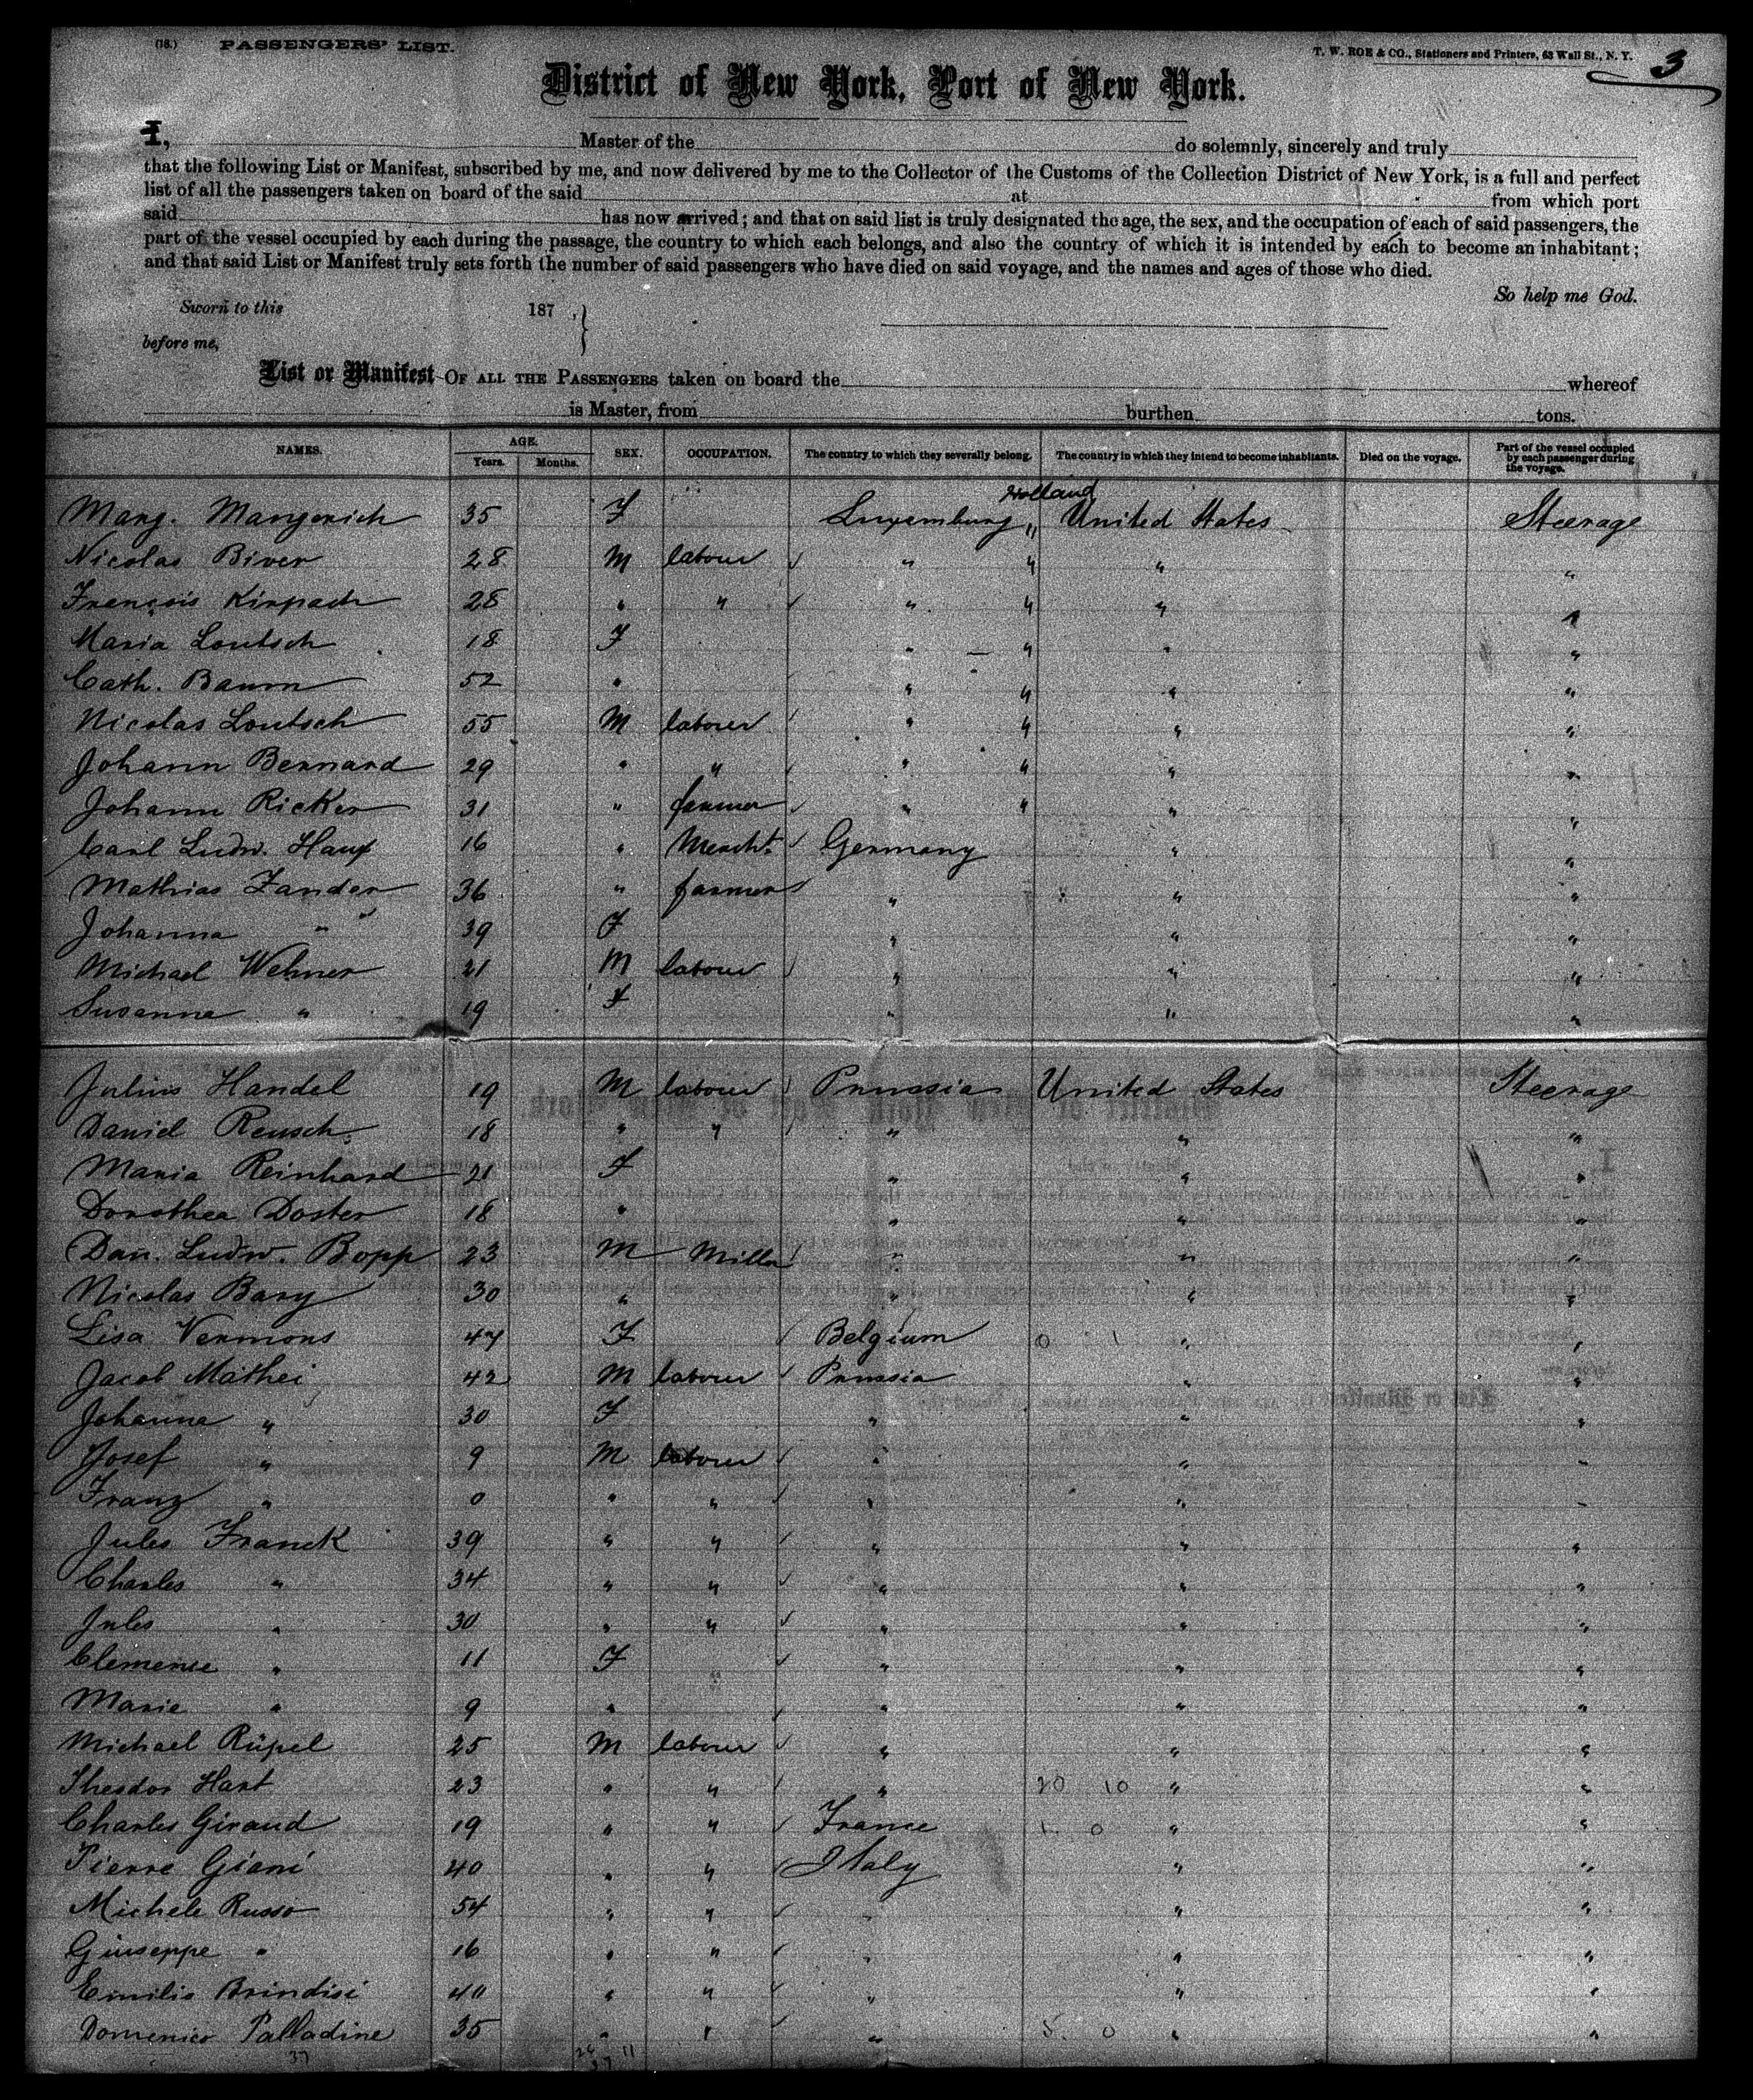 (18.) PASSENGERS' LIST. T. W. ROE & CO., Stationers and Printers, 63 Wall St., N. Y. 3
District of New York, Port of New York.
I, Master of the do solemnly, sincerely and truly
that the following List or Manifest, subscribed by me, and now delivered by me to the Collector of the Customs of the Collection District of New York, is a full and perfect
list of all the passengers taken on board of the said at from which port
said has now arrived; and that on said list is truly designated the age, the sex, and the occupation of each of said passengers, the
part of the vessel occupied by each during the passage, the country to which each belongs, and also the country of which it is intended by each to become an inhabitant;
and that said List or Manifest truly sets forth the number of said passengers who have died on said voyage, and the names and ages of those who died.
So help me God.
Sworn to this 187 ,
before me,
List or Manifest OF ALL THE PASSENGERS taken on board the whereof
is Master, from burthen tons.
NAMES. AGE. Years. Months. SEX. OCCUPATION. The country to which they severally belong. The country in which they intend to become inhabitants. Died on the voyage. Part of the vessel occupied by each passenger during the voyage.
Holland
Marg. Mangerich 35 F Luxemburg " United States Steerage
Nicolas Biver 28 M labour " " " "
François Kirpach 28 " " " " " "
Maria Loutsch 18 F " " " "
Cath. Baum 52 " " " " "
Nicolas Loutsch 55 M labour " " " "
Johann Bernard 29 " " " " " "
Johann Ricker 31 " farmer " " " "
Carl Ludw. Hauf 16 " Mercht. Germany " "
Mathias Zander 36 " farmer " " "
Johanna " 39 F " " "
Michael Wehner 21 M labour " " "
Susanna " 19 F " " "
Julius Handel 19 M labour Prussia United States Steerage
Daniel Reusch 18 " " " " "
Maria Reinhard 21 F " " "
Dorothea Doster 18 " " " "
Dan. Ludw. Bopp 23 M Miller " " "
Nicolas Bary 30 " " " "
Lisa Vermons 47 F Belgium 0 1 " "
Jacob Mathei 42 M labour Prussia " "
Johanna " 30 F " " "
Josef " 9 M labour " " "
Franz " 0 " " " " "
Jules Franck 39 " " " " "
Charles " 34 " " " " "
Jules " 30 " " " " "
Clemence " 11 F " " "
Marie " 9 " " " "
Michael Rüpel 25 M labour " " "
Theodor Hart 23 " " " 20 10 " "
Charles Giraud 19 " " France 1 0 " "
Pierre Giani 40 " " Italy " "
Michele Russo 54 " " " " "
Giuseppe " 16 " " " " "
Emilio Brindisi 40 " " " " "
Domenico Palladine 35 " " " 5 0 " "
37 26 11
37